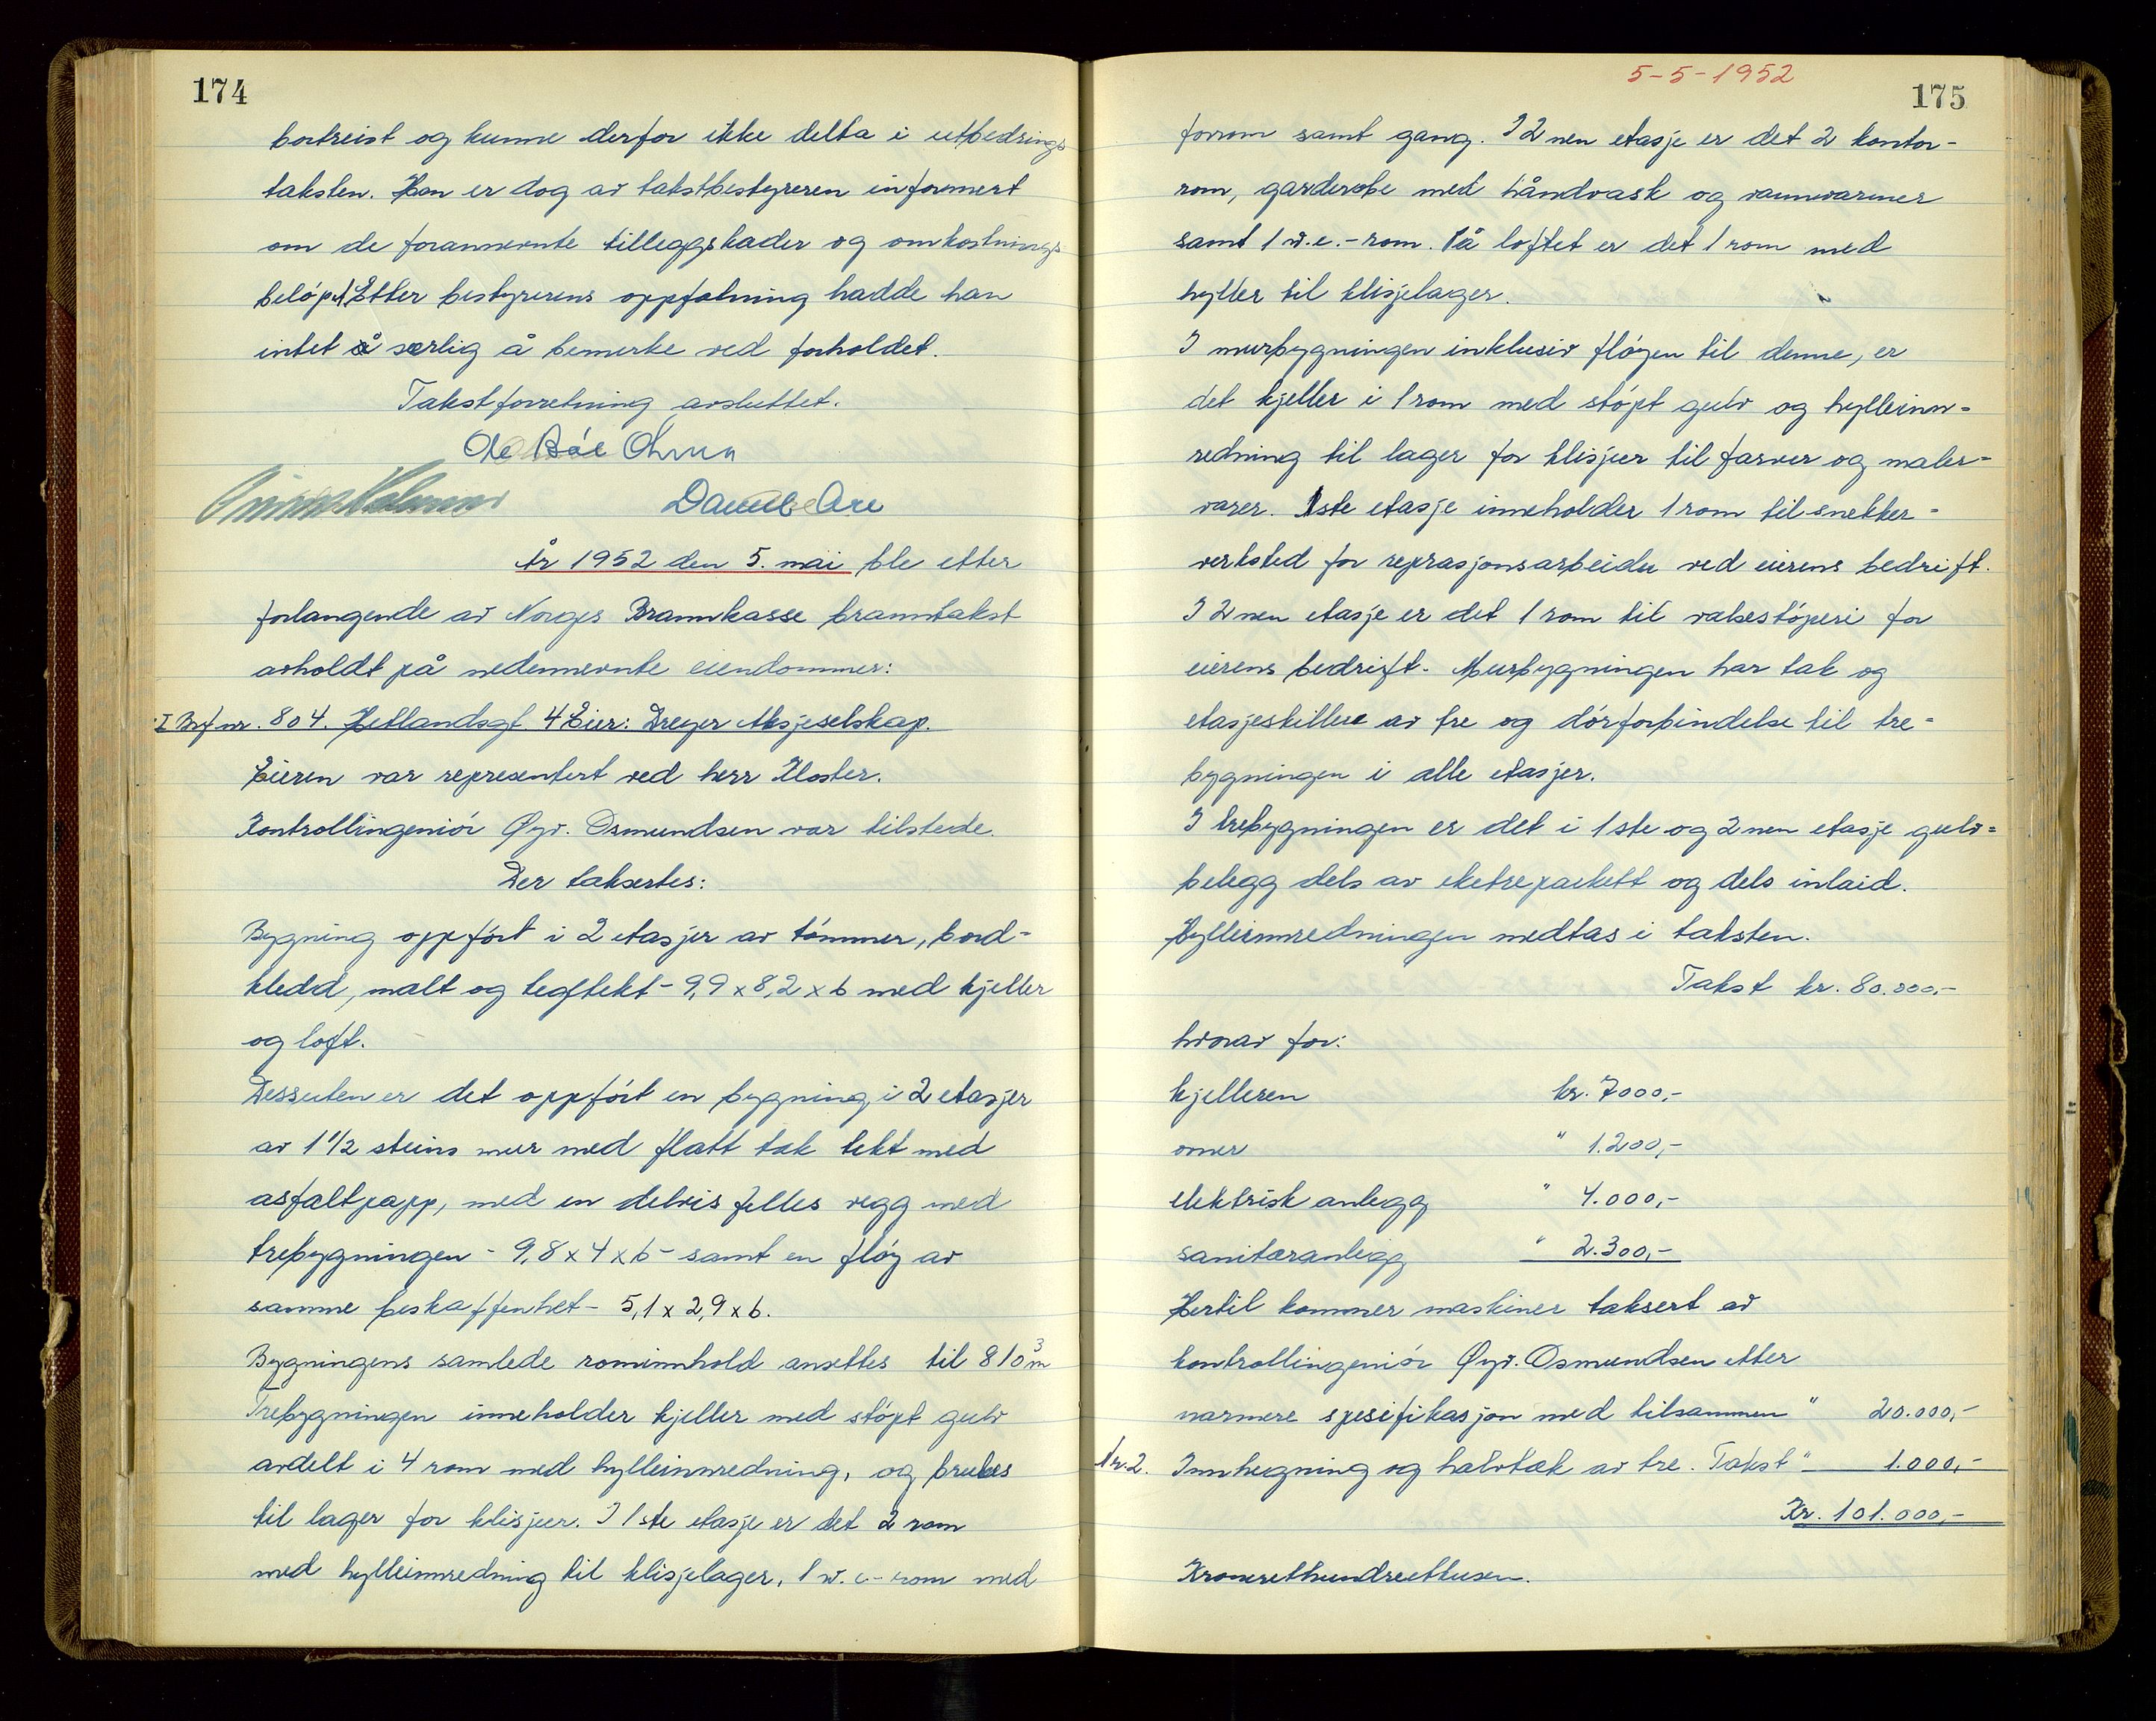 174
bortreist og kunne derfor ikke delta i utbedrings
taksten. Han er dog av takstbestyreren informert
om de forannevnte tilleggskader og omkostnings
beløpet. Etter bestyrerens oppfatning hadde han
intet å særlig å bemerke ved forholdet.
Takstforretning avsluttet.
År 1952 den 5. mai ble etter
forlangende av Norges Brannkasse branntakst
avholdt på nedennevnte eiendommer:
I Brf nr. 804. Hetlandsgt. 4 Eier: Dreyer Aksjeselskap.
Eieren var representert ved herr Kloster.
Kontrollingeniør Øyv. Osmundsen var tilstede.
Der taksertes:
Bygning oppført i 2 etasjer av tømmer, bord-
kledd, malt og tegltekt - 9,9 x 8,2 x 6 med kjeller
og loft.
Dessuten er det oppført en bygning i 2 etasjer
av 1 1/2 steins mur med flatt tak tekt med
asfaltpapp, med en delvis felles vegg med
trebygningen - 9,8 x 4 x 6 - samt en fløy av
samme beskaffenhet - 5,1 x 2,9 x 6.
Bygningens samlede rominnhold ansettes til 810 m3
Trebygningen inneholder kjeller med støpt gulv
avdelt i 4 rom med hylleinnredning, og brukes
til lager for klisjeer. I 1ste etasje er det 2 rom
med hylleinnredning til klisjelager, 1 w.c.-rom med
5-5-1952
175
forrom samt gang. I 2nen etasje er det 2 kontor-
rom, garderobe med håndvask og varmvarmer
samt 1 w.c.-rom. På loftet er det 1 rom med
hyller til klisjelager.
I murbygningen inklusiv fløyen til denne, er
det kjeller i 1 rom med støpt gulv og hylleinn-
redning til lager for klisjeer til farver og maler-
varer. 1ste etasje inneholder 1 rom til snekker-
verksted for reprasjonsarbeider ved eierens bedrift.
I 2nen etasje er det 1 rom til valsestøperi for
eierens bedrift. Murbygningen har tak og
etasjeskiller av tre og dørforbindelse til tre-
bygningen i alle etasjer.
I trebygningen er det i 1ste og 2nen etasje gulv-
belegg dels av eketreparkett og dels inlaid.
Hylleinnredningen medtas i taksten.
Takst kr. 80.000,-
hvorav for:
kjelleren kr. 7000,-
ovner " 1.200,-
elektrisk anlegg " 4.000,-
sanitæranlegg " 2.300,-
Hertil kommer maskiner taksert av
kontrollingeniør Øyv. Osmundsen etter
nærmere spesifikasjon med tilsammen " 20.000,-
Nr. 2. Innhegning og halvtak av tre. Takst " 1.000,-
Kr. 101.000,-
Kroneretthundreettusen.